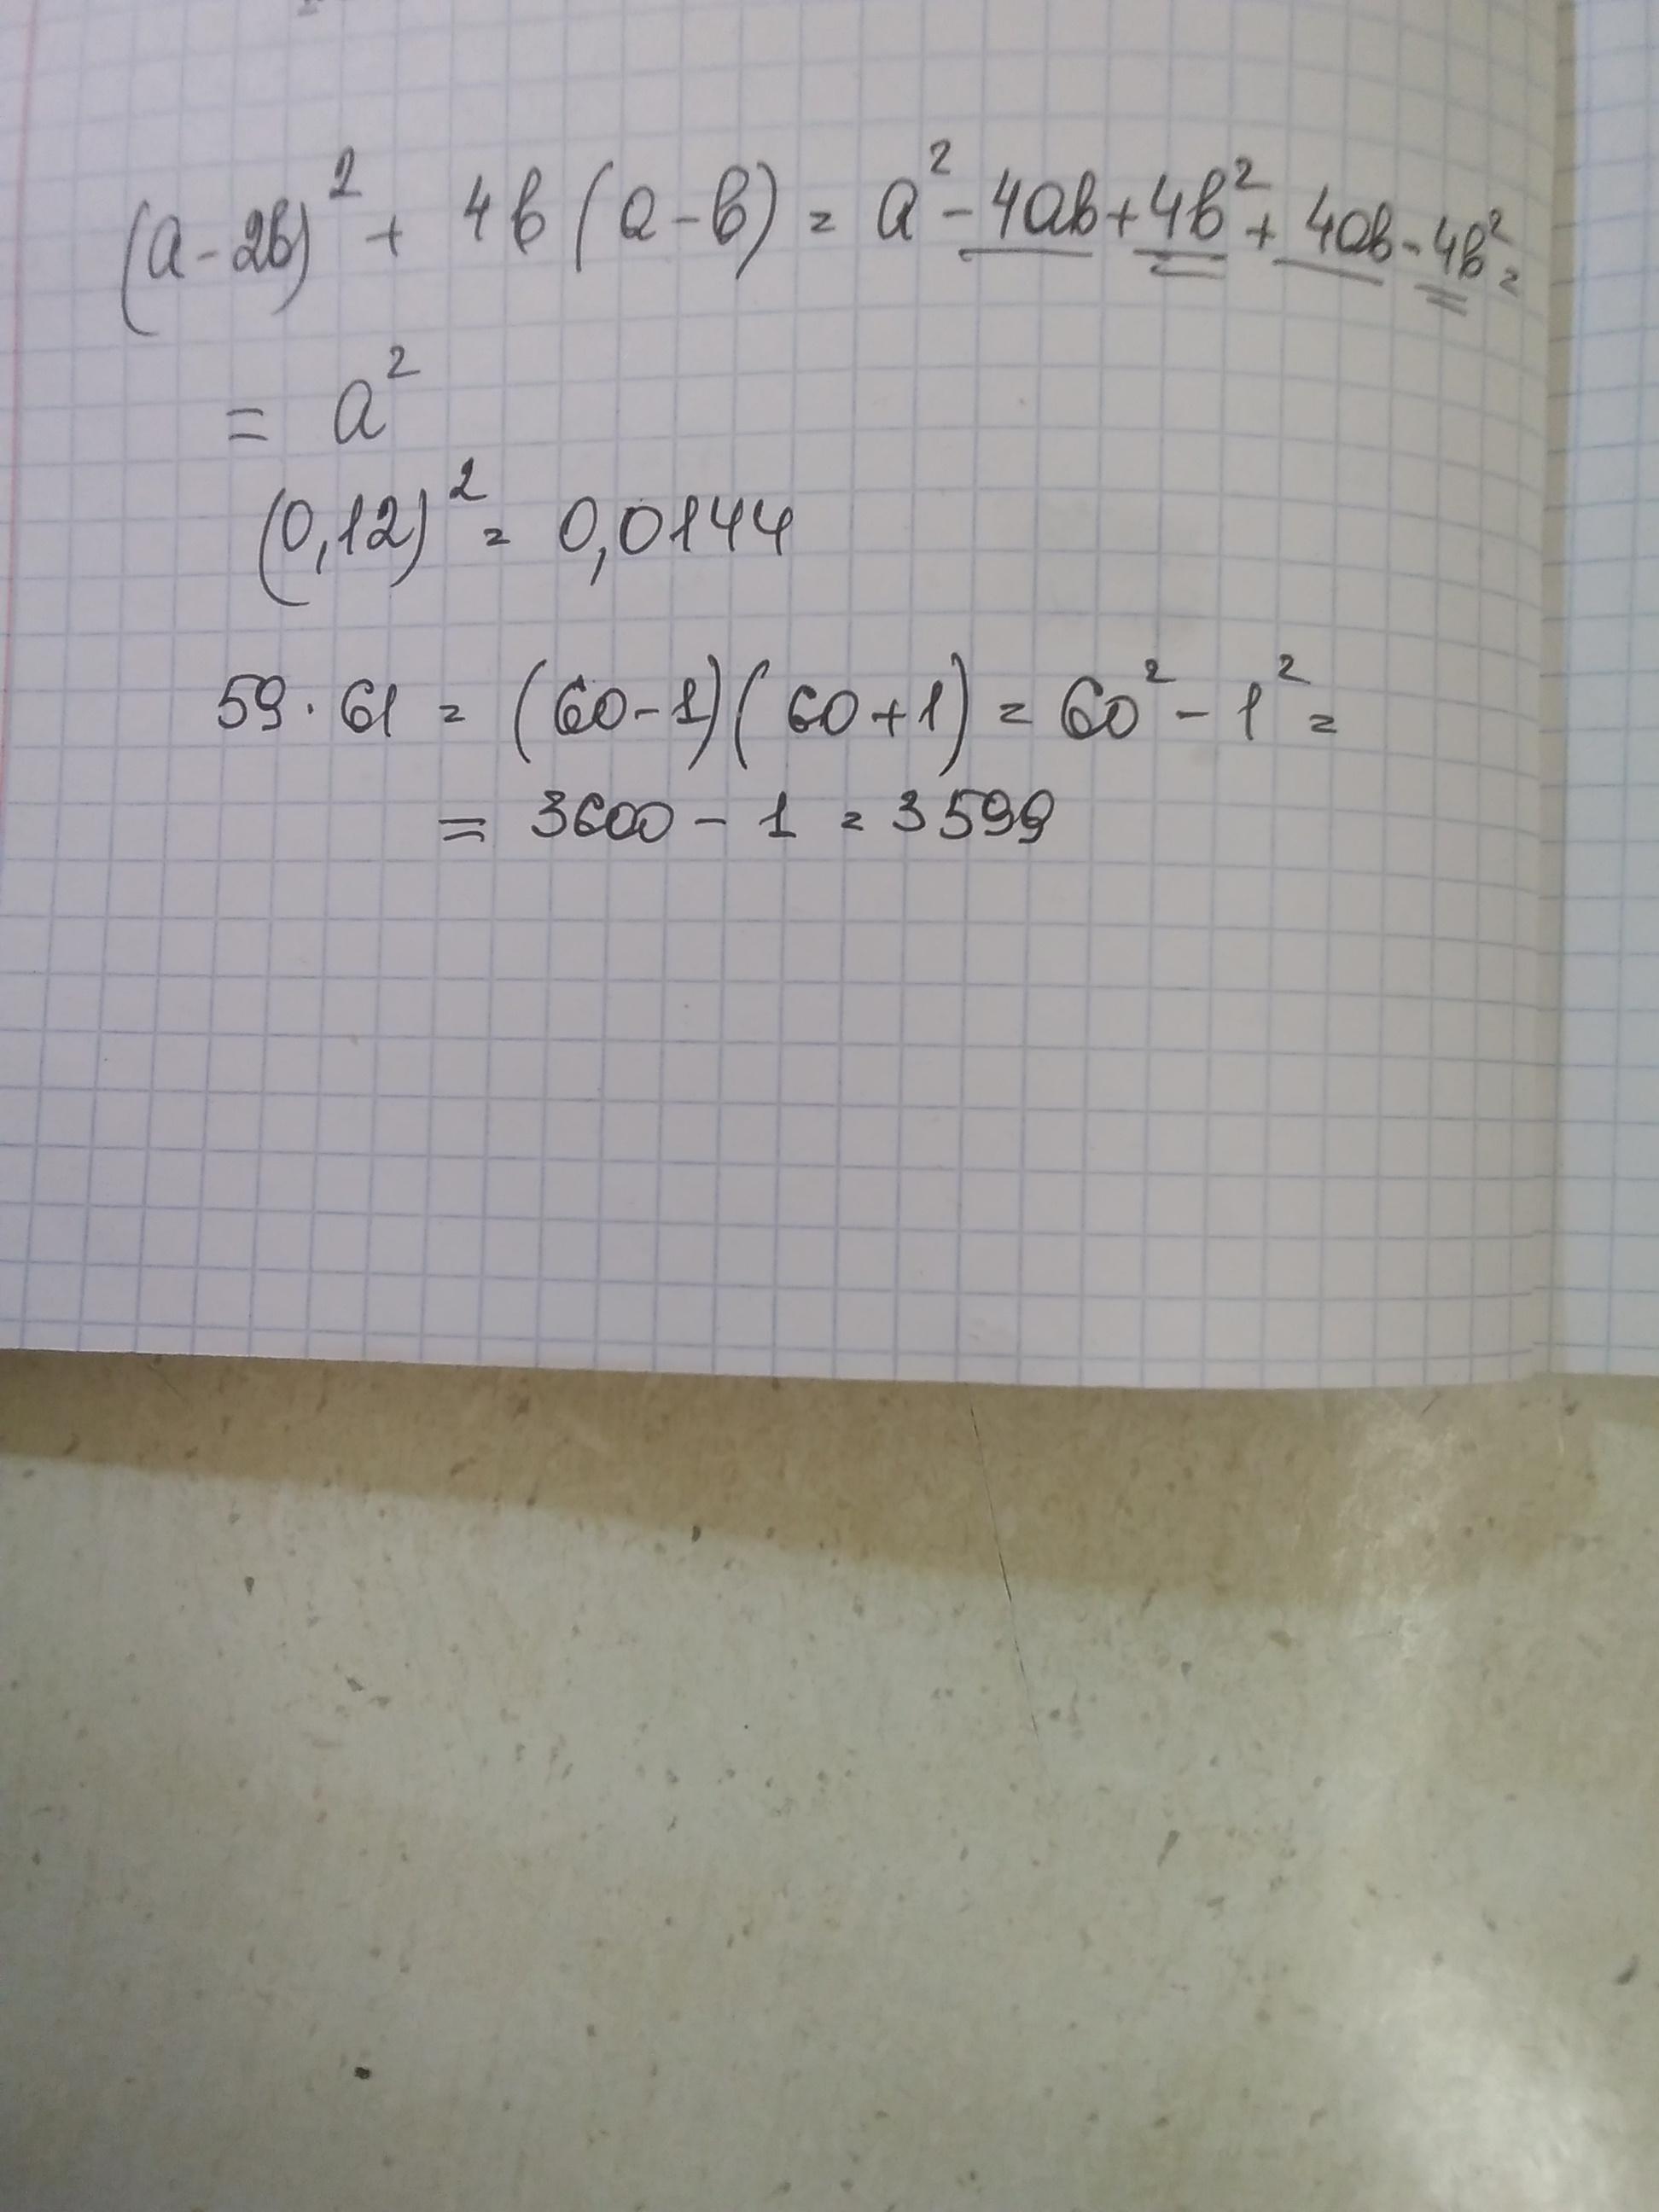 (a-2b)² + 4b(a-b) = a² - 4ab + 4b² + 4ab - 4b² =
= a²
(0,12)² = 0,0144
59 · 61 = (60-1)(60+1) = 60² - 1² =
= 3600 - 1 = 3599